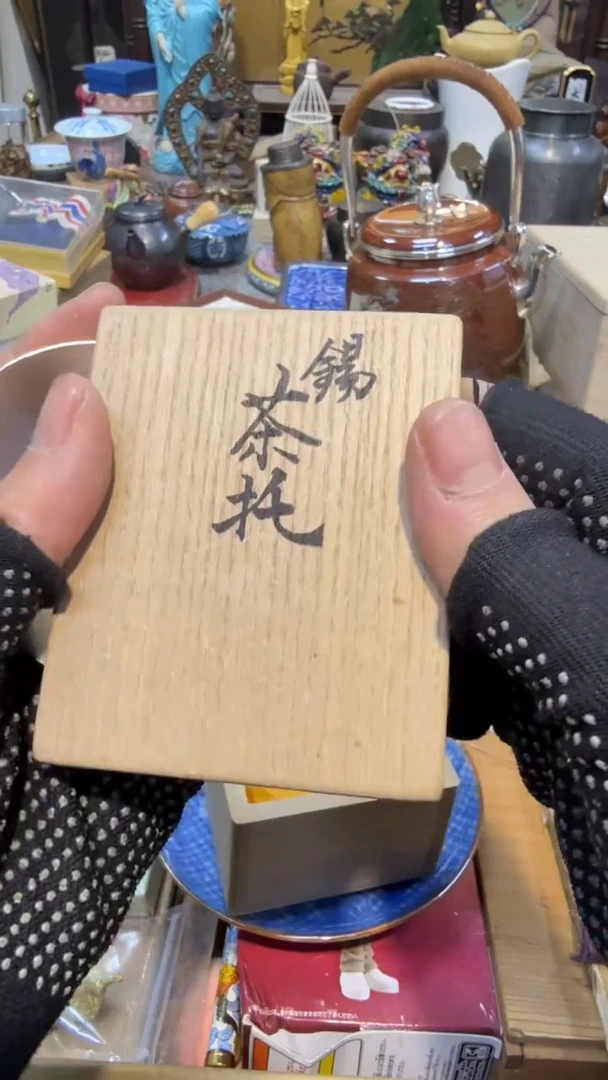 錫
茶托